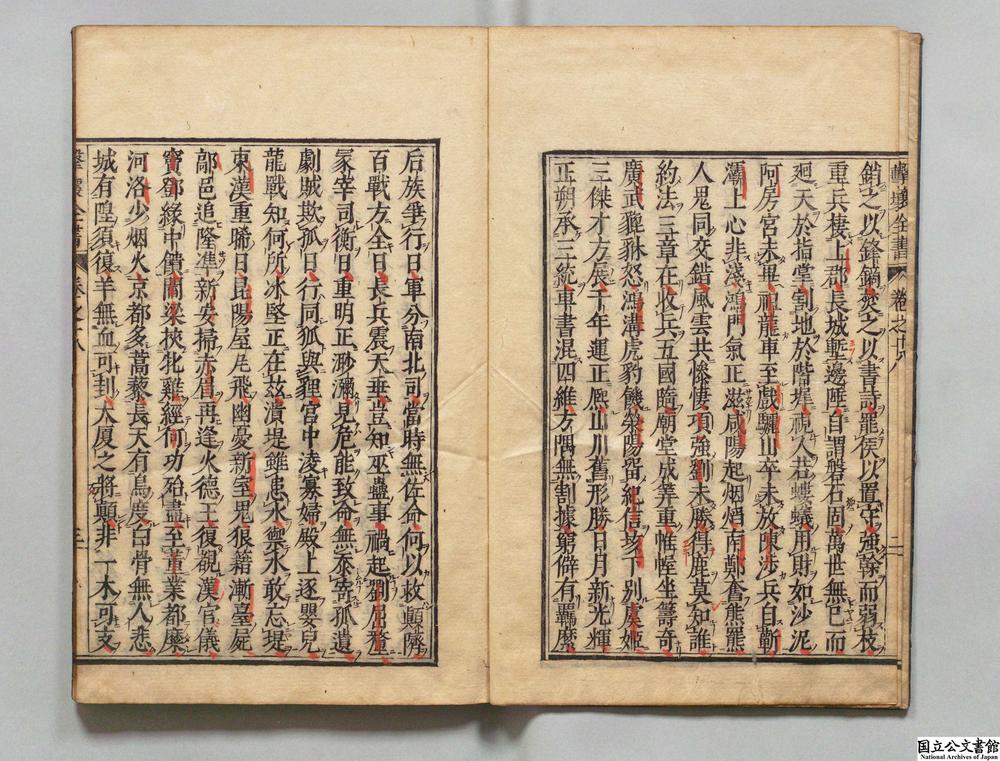 銷之以鋒鏑焚之以書詩罷侯以置守強幹而弱枝
重兵棲上郡長城塹邊陲自謂磐石固萬世無已而
廻天於指堂割地於階墀視人若螻蟻用財如沙泥
阿房宮未畢祖龍車至戲驪山卒未放陳涉兵自蘄
灞上心非淺鴻門氣正滋咸陽起烟焰南鄭奮熊羆
人鬼同交錯風雲共慘悽項強劉未勝得鹿莫知誰
約法三章在收兵五國隨廟堂成筭重帷幄坐籌奇
廣武貔貅怒鴻溝虎豹饑滎陽留紀信亥下別虞姬
三傑才方展千年運正熈山川舊形勝日月新光輝
正朔承三統車書混四維方隅無割據窮僻有羈縻
后族爭行日軍分南北司當時無佐命何以救顛隮
百戰方全日長兵震天垂豈知巫蠱事禍起劉屈氂
冢宰司衡日重明正渺瀰見危能致命無忝寄孤遺
劇賊欺孤日行同狐與狸宮中淩寡婦殿上逐嬰兒
龍戰知何所冰堅正在兹潰堤雖患水禦水敢忘堤
東漢重晞日昆陽屋瓦飛幽憂新室鬼狼籍漸臺屍
鄗邑追隆準新安掃赤眉再逢火德王復覩漢官儀
竇鄧緣中饋閻梁挾牝雞經何功殆盡至董業都糜
河洛少烟火京都多蒿藜長天有鳥度白骨無人悲
城有隍須復羊無血可刲大厦之將顛非一木可支
擊壤全書 卷之十八 二
擊壤全書 卷之十八 三
国立公文書館
National Archives of Japan